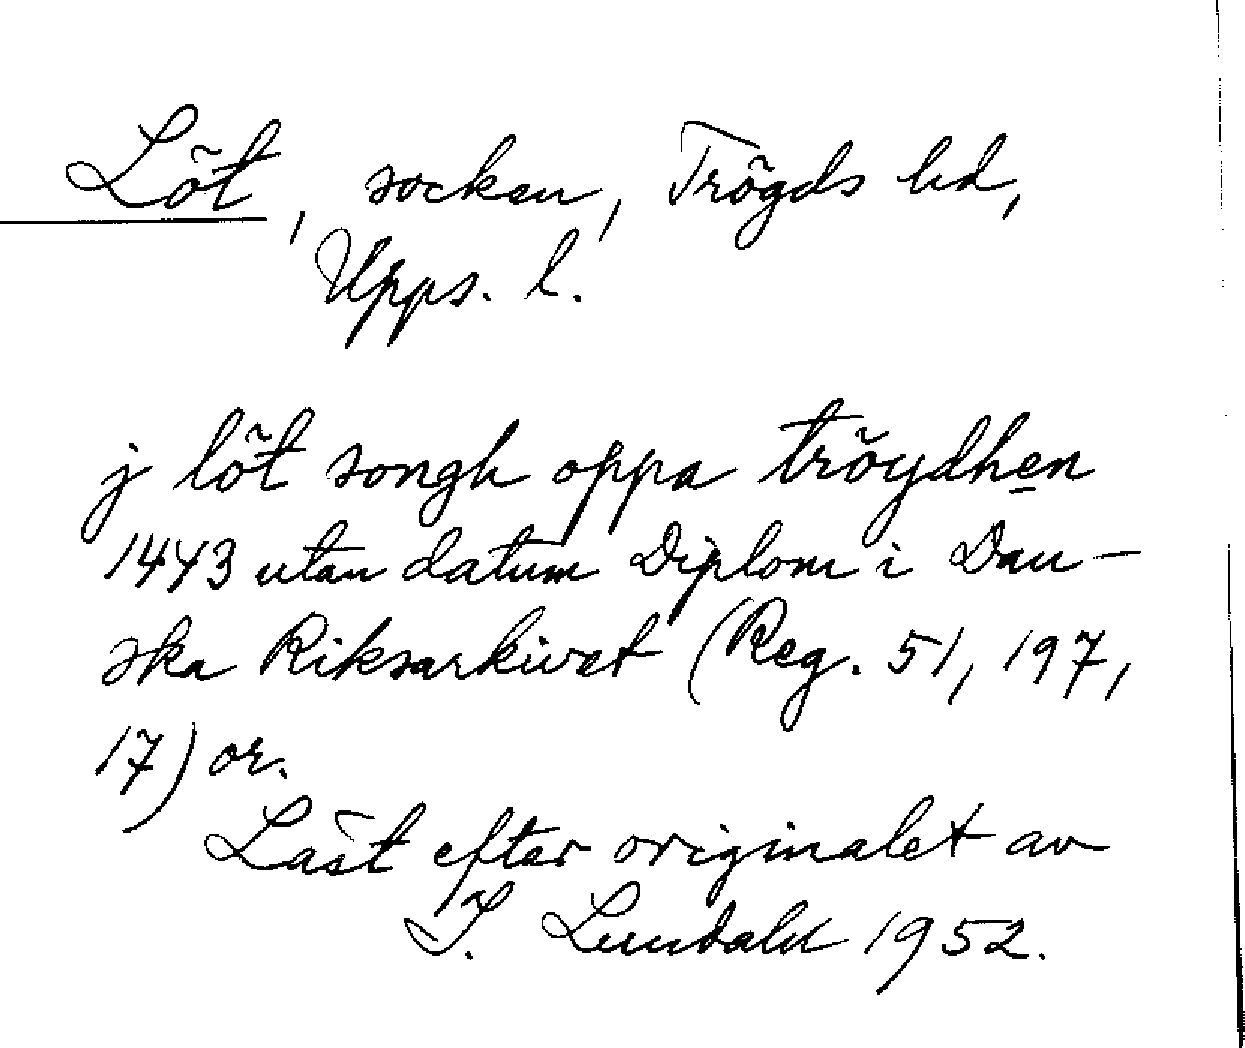 Löt, socken, Trögds hd,
Upps. l.
j löt songh oppa tröydhen
1443 utan datum Diplom i Dan-
ska Riksarkivet (Reg. 51, 197,
17) or.
Läst efter originalet av
I. Lundahl 1952.